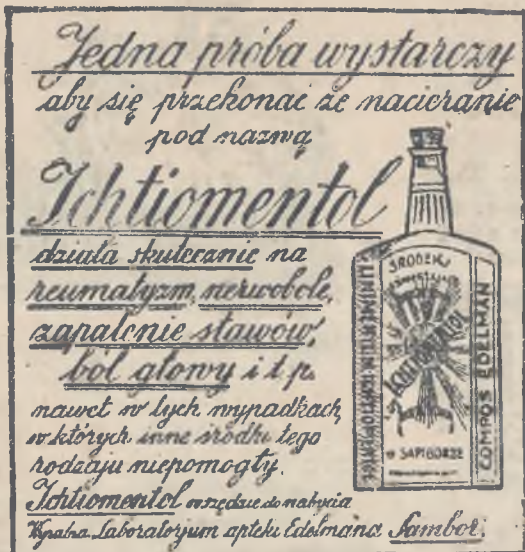 Jedna próba wystarczy
aby się przekonać że nacieranie
pod nazwą
Ichtiomentol
działa skutecznie na
reumatyzm, nerwobole,
zapalenie stawów,
ból głowy i t.p.
nawet w tych wypadkach,
w których inne środki tego
rodzaju niepomogły.
Ichtiomentol wszędzie do nabycia
Laboratorjum apteki Edelmana Sambor.
ŚRODEK
ICHTIOMENTOL
W SAMBORZE
COMPOS EDELMAN